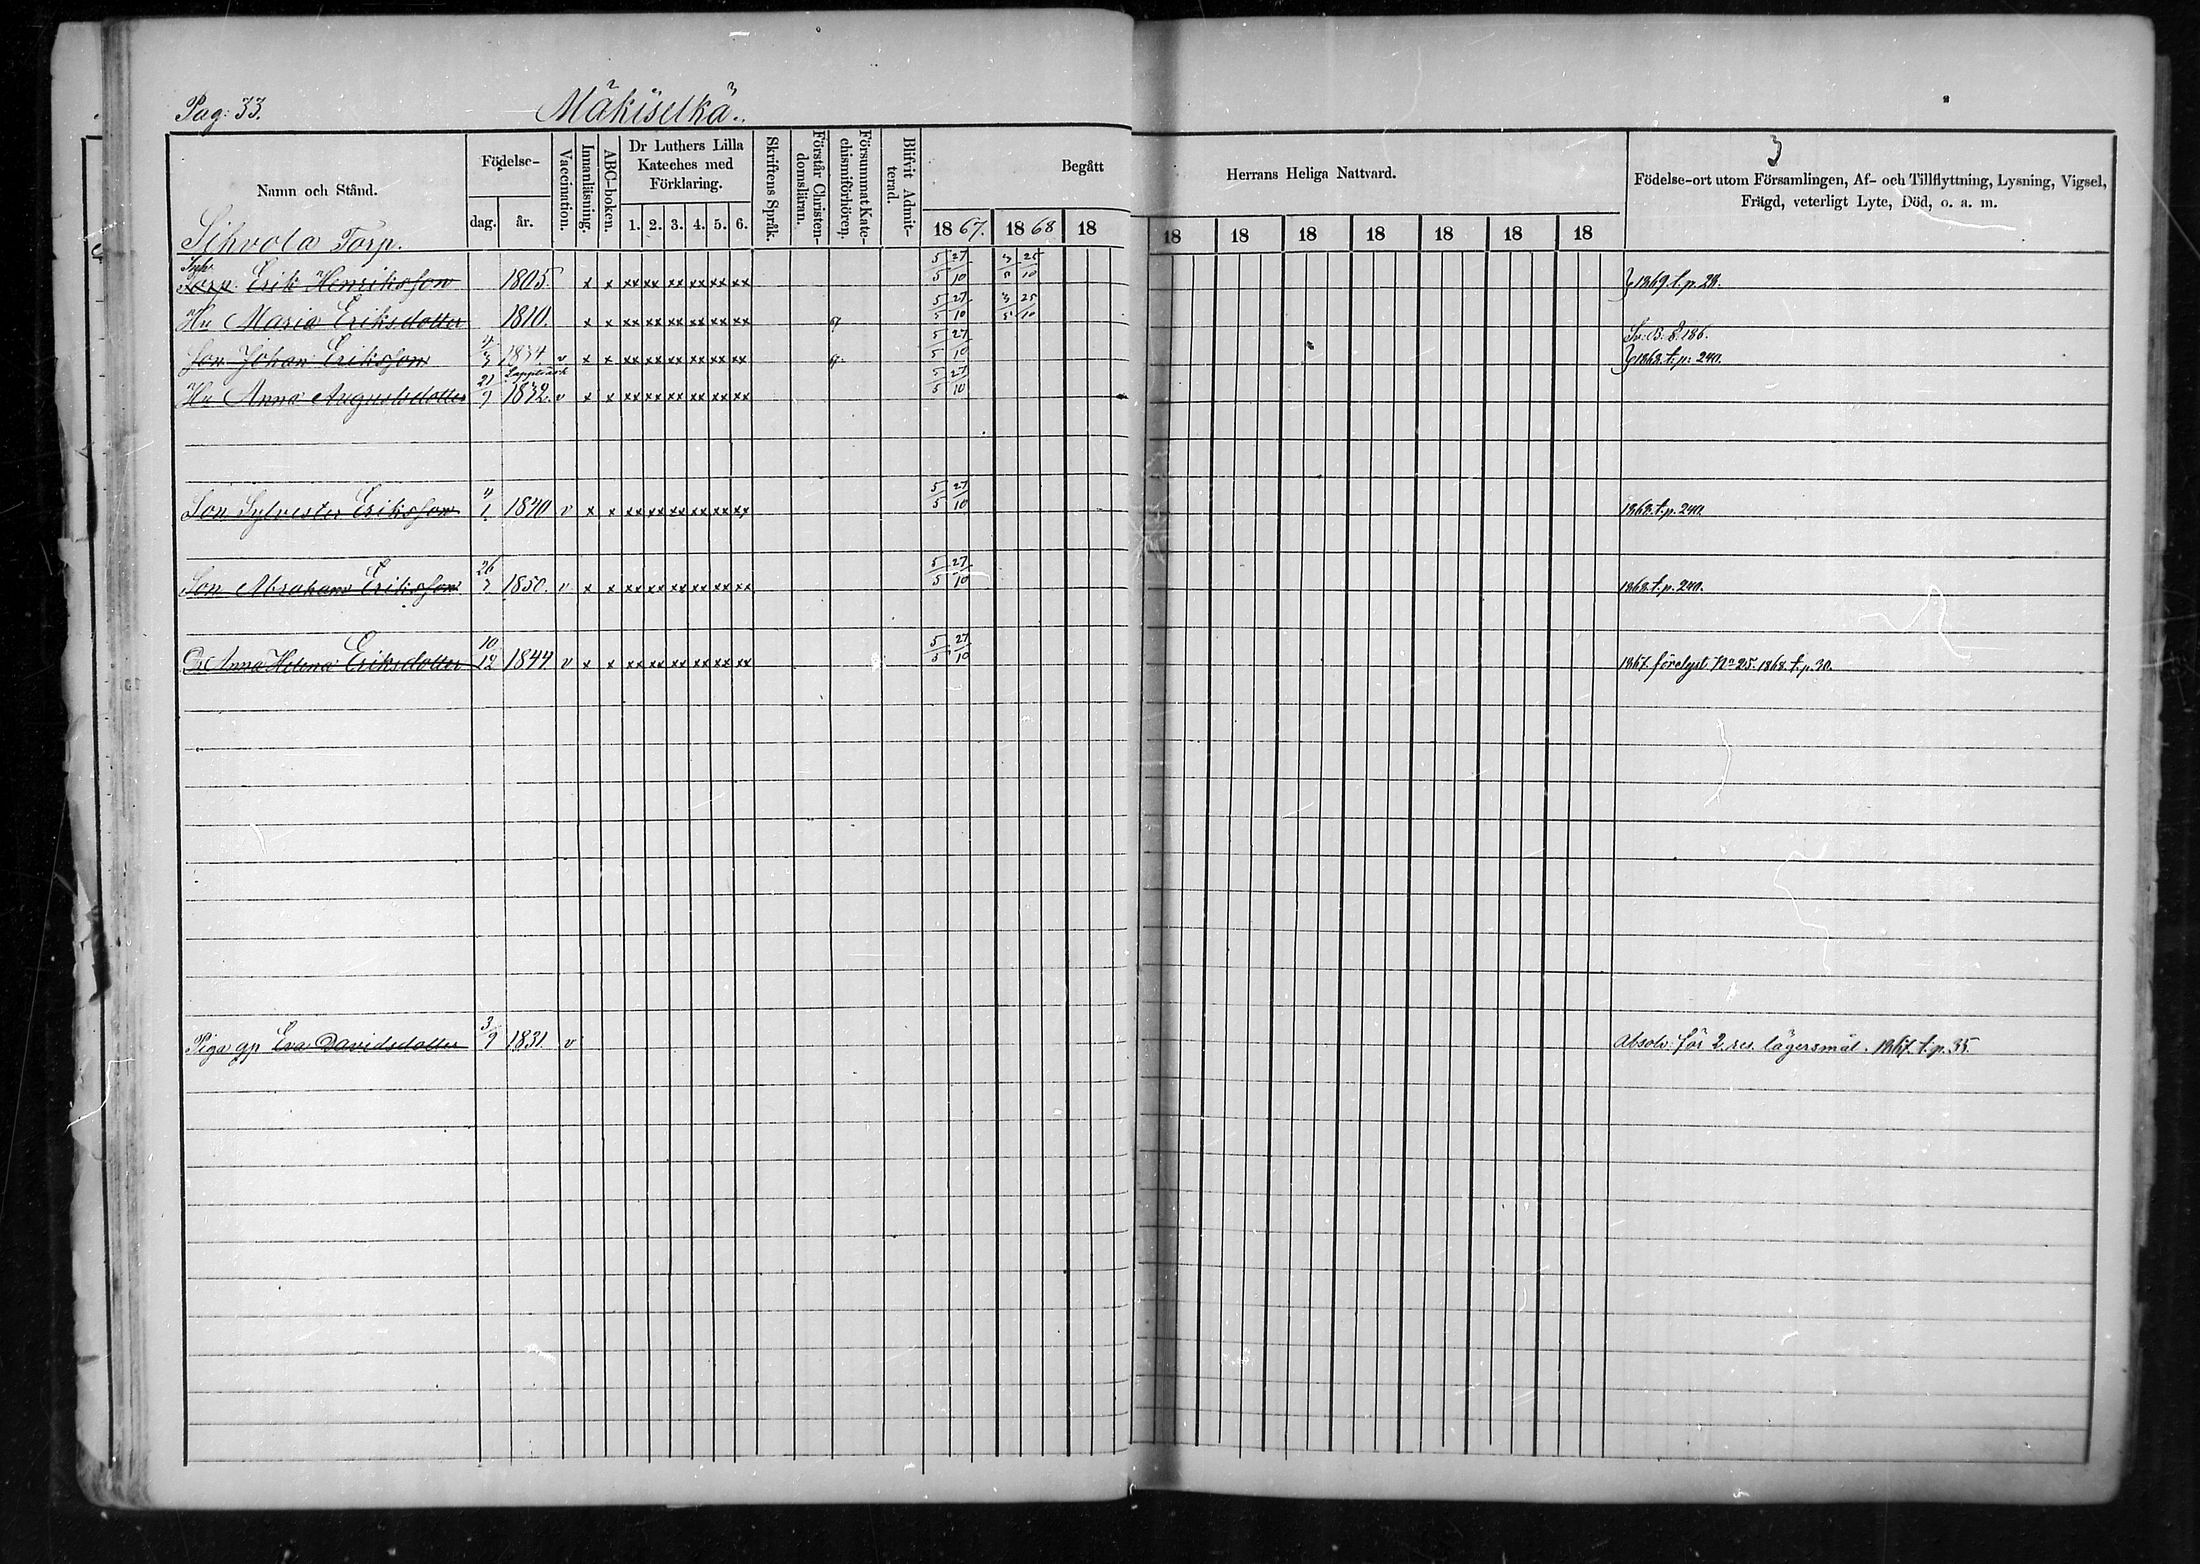 Pag: 33. Mäkiselkä.
Namn och Stånd. Födelse- dag. år. Vaccination. Innanläsning. ABC-boken. Dr Luthers Lilla Kateches med Förklaring. 1. 2. 3. 4. 5. 6. Skriftens Språk. Förstår Christendomsläran. Försummat Katechismiförhören. Blifvit Admitterad. Begått Herrans Heliga Nattvard. 1867. 1868 18 18 18 18 18 18 18 18
3
Födelse-ort utom Församlingen, Af- och Tillflyttning, Lysning, Vigsel, Frägd, veterligt Lyte, Död, o. a. m.
Sihvola Torp.
Torp. Erik Henriksson 1805. x x xx xx xx xx xx xx 5/5 27/10 3/5 25/10 } 1869.t.p.28.
Hu Maria Eriksdotter 1810. x x xx xx xx xx xx xx 67 5/5 27/10 3/5 25/10
Son Johan Eriksson 4/3 1834 v x x xx xx xx xx xx xx 67. 5/5 27/10 } 1868.t.p. 240.
Lappträsk
Hu Anna Augustsdotter 21/9 1832. v x x xx xx xx xx xx xx 5/5 27/10
Son Sylvester Eriksson 4/1 1840 v x x xx xx xx xx xx xx 5/5 27/10 1868.t.p.240.
Son Abraham Eriksson 26/3 1850. v x x xx xx xx xx xx xx 5/5 27/10 1868.t.p.240.
D. Anna Helena Eriksdotter 10/12 1844 v x x xx xx xx xx xx xx 5/5 27/10 1867 förelyst No 25. 1868.t.p.30.
Piga gp Eva Davidsdotter 3/9 1831 v Absolv: för 2 res. lägersmål. 1867.t.p.35.